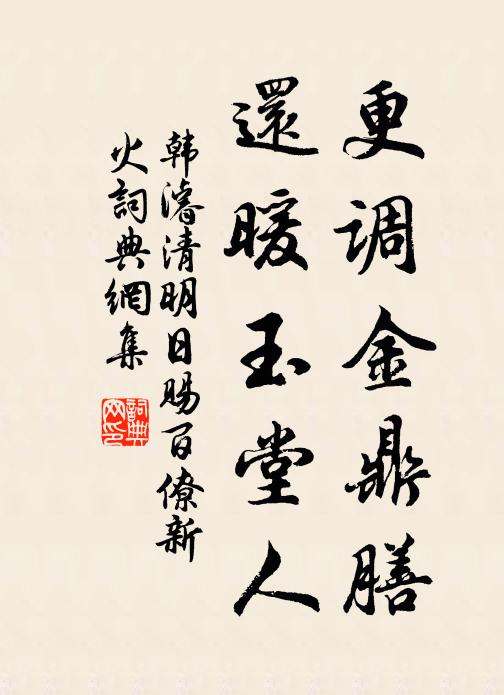 更调金鼎膳
還暖玉堂人
韩濬清明日賜百僚新
火詞典網集
詞典
网印